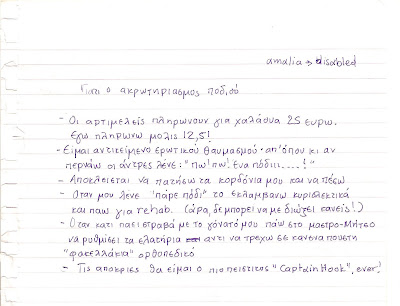 amalia → disabled
Γιατι ο ακρωτηριασμος ποδισό
- Οι αρτιμελείς πληρωνουν για χαλάουα 25 ευρω.
Εγω πληρωνω μολις 12,5!
- Είμαι αντικείμενο ερωτικού θαυμασμού· απ'όπου κι αν
περνάω οι άντρες λένε: "πω! πω! ένα πόδιιι....!"
- Αποκλειεται να πατήσω τα κορδόνια μου και να πέσω
- Οταν μου λενε "πάρε πόδι" το εκλαμβανω κυριολεκτικά
και παω για rehab. (άρα, δε μπορεί να με διώξει κανείς!)
- Οταν κατι παει στραβά με το γόνατό μου πάω στο μαστρο-Μήτσο
να ρυθμίσει τα ελατήρια αντι να τρεχω σε κανενα πουστη
"φακελλάκια" ορθοπεδικό
- Τις αποκριες θα είμαι ο πιο πειστικος "Captain Hook", ever!